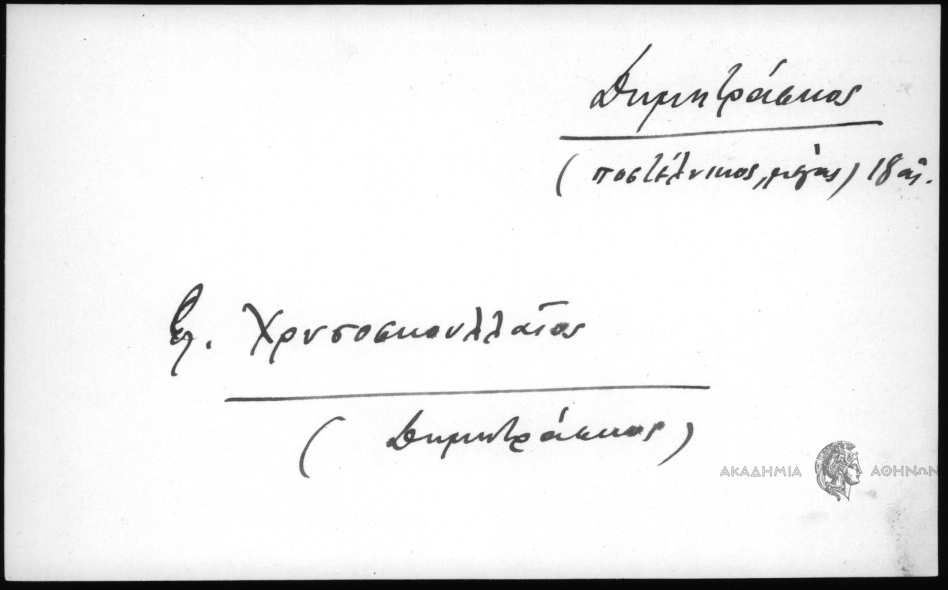 Δημητράσκος
(ποστέλνικος, μέγας) 18 αἰ.
Βλ. Χρυσοσκουλλαῖος
(Δημητράσκος)
ΑΚΑΔΗΜΙΑ ΑΘΗΝΩΝ